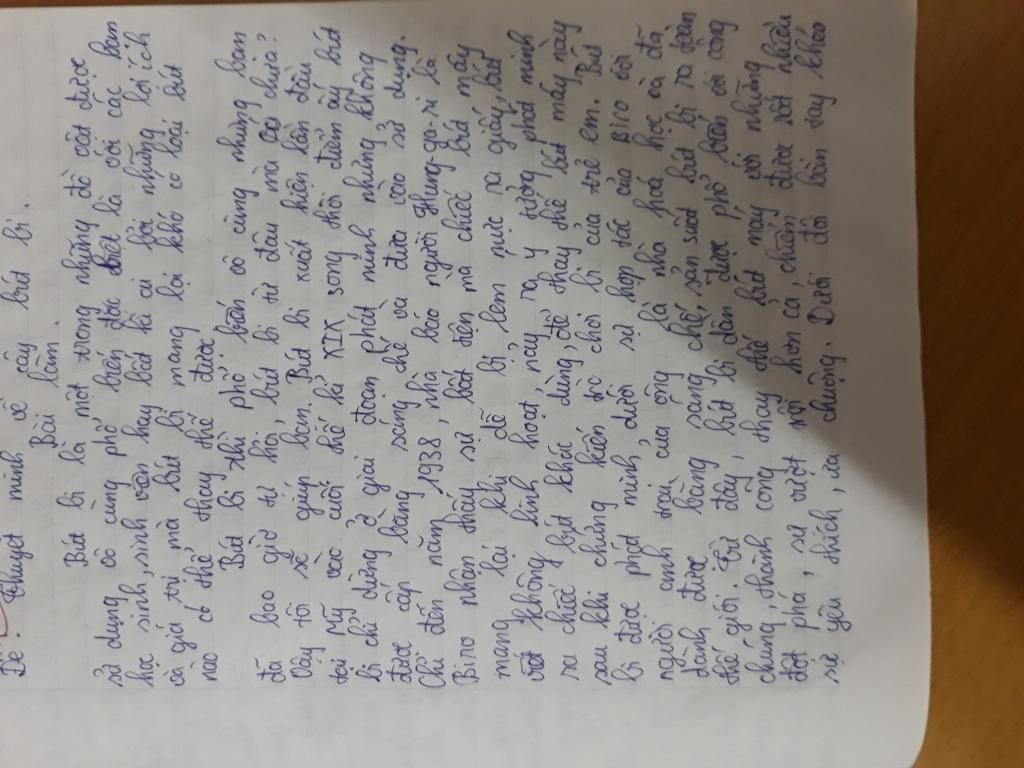 Đề: Thuyết minh về cây bút bi.
Bài làm.
Bút bi là một trong những đồ vật được
sử dụng vô cùng phổ biến đặc biệt là với các bạn
học sinh, sinh viên hay bất kì ai bởi những lợi ích
và giá trị mà bút bi mang lại khó có loại bút
nào có thể thay thế được
Bút bi thì phổ biến vô cùng nhưng bạn
đã bao giờ tự hỏi, bút bi từ đâu mà có chưa?
Vậy tôi sẽ giúp bạn. Bút bi xuất hiện lần đầu
tại Mỹ vào cuối thế kỉ XIX song thời điểm ấy bút
bi chỉ dừng ở giai đoạn phát minh nhưng không
được cấp bằng sáng chế và đưa vào sử dụng.
Chỉ đến năm 1938, nhà báo người Hung-ga-ri là
Biro nhận thấy sự bất tiện mà chiếc bút máy
mang lại khi dễ bị lem mực ra giấy, bút
không linh hoạt, nảy ra ý tưởng phát minh
ra chiếc bút khác dùng để thay thế bút máy này
sau khi chứng kiến trò chơi bi của trẻ em. Bút
bi được phát minh, dưới sự hợp tác của Biro với
người anh trai của ông là nhà hoá học và đã
dành được bằng sáng chế, sản suất bút bi ra toàn
thế giới. Từ đây, bút bi dần được phổ biến với công
chúng, thành công thay thế bút máy với những
đột phá, sự vượt rội hơn cả, chiếm được rất nhiều
sự yêu thích, ưa chuộng. Dưới đôi bàn tay khéo